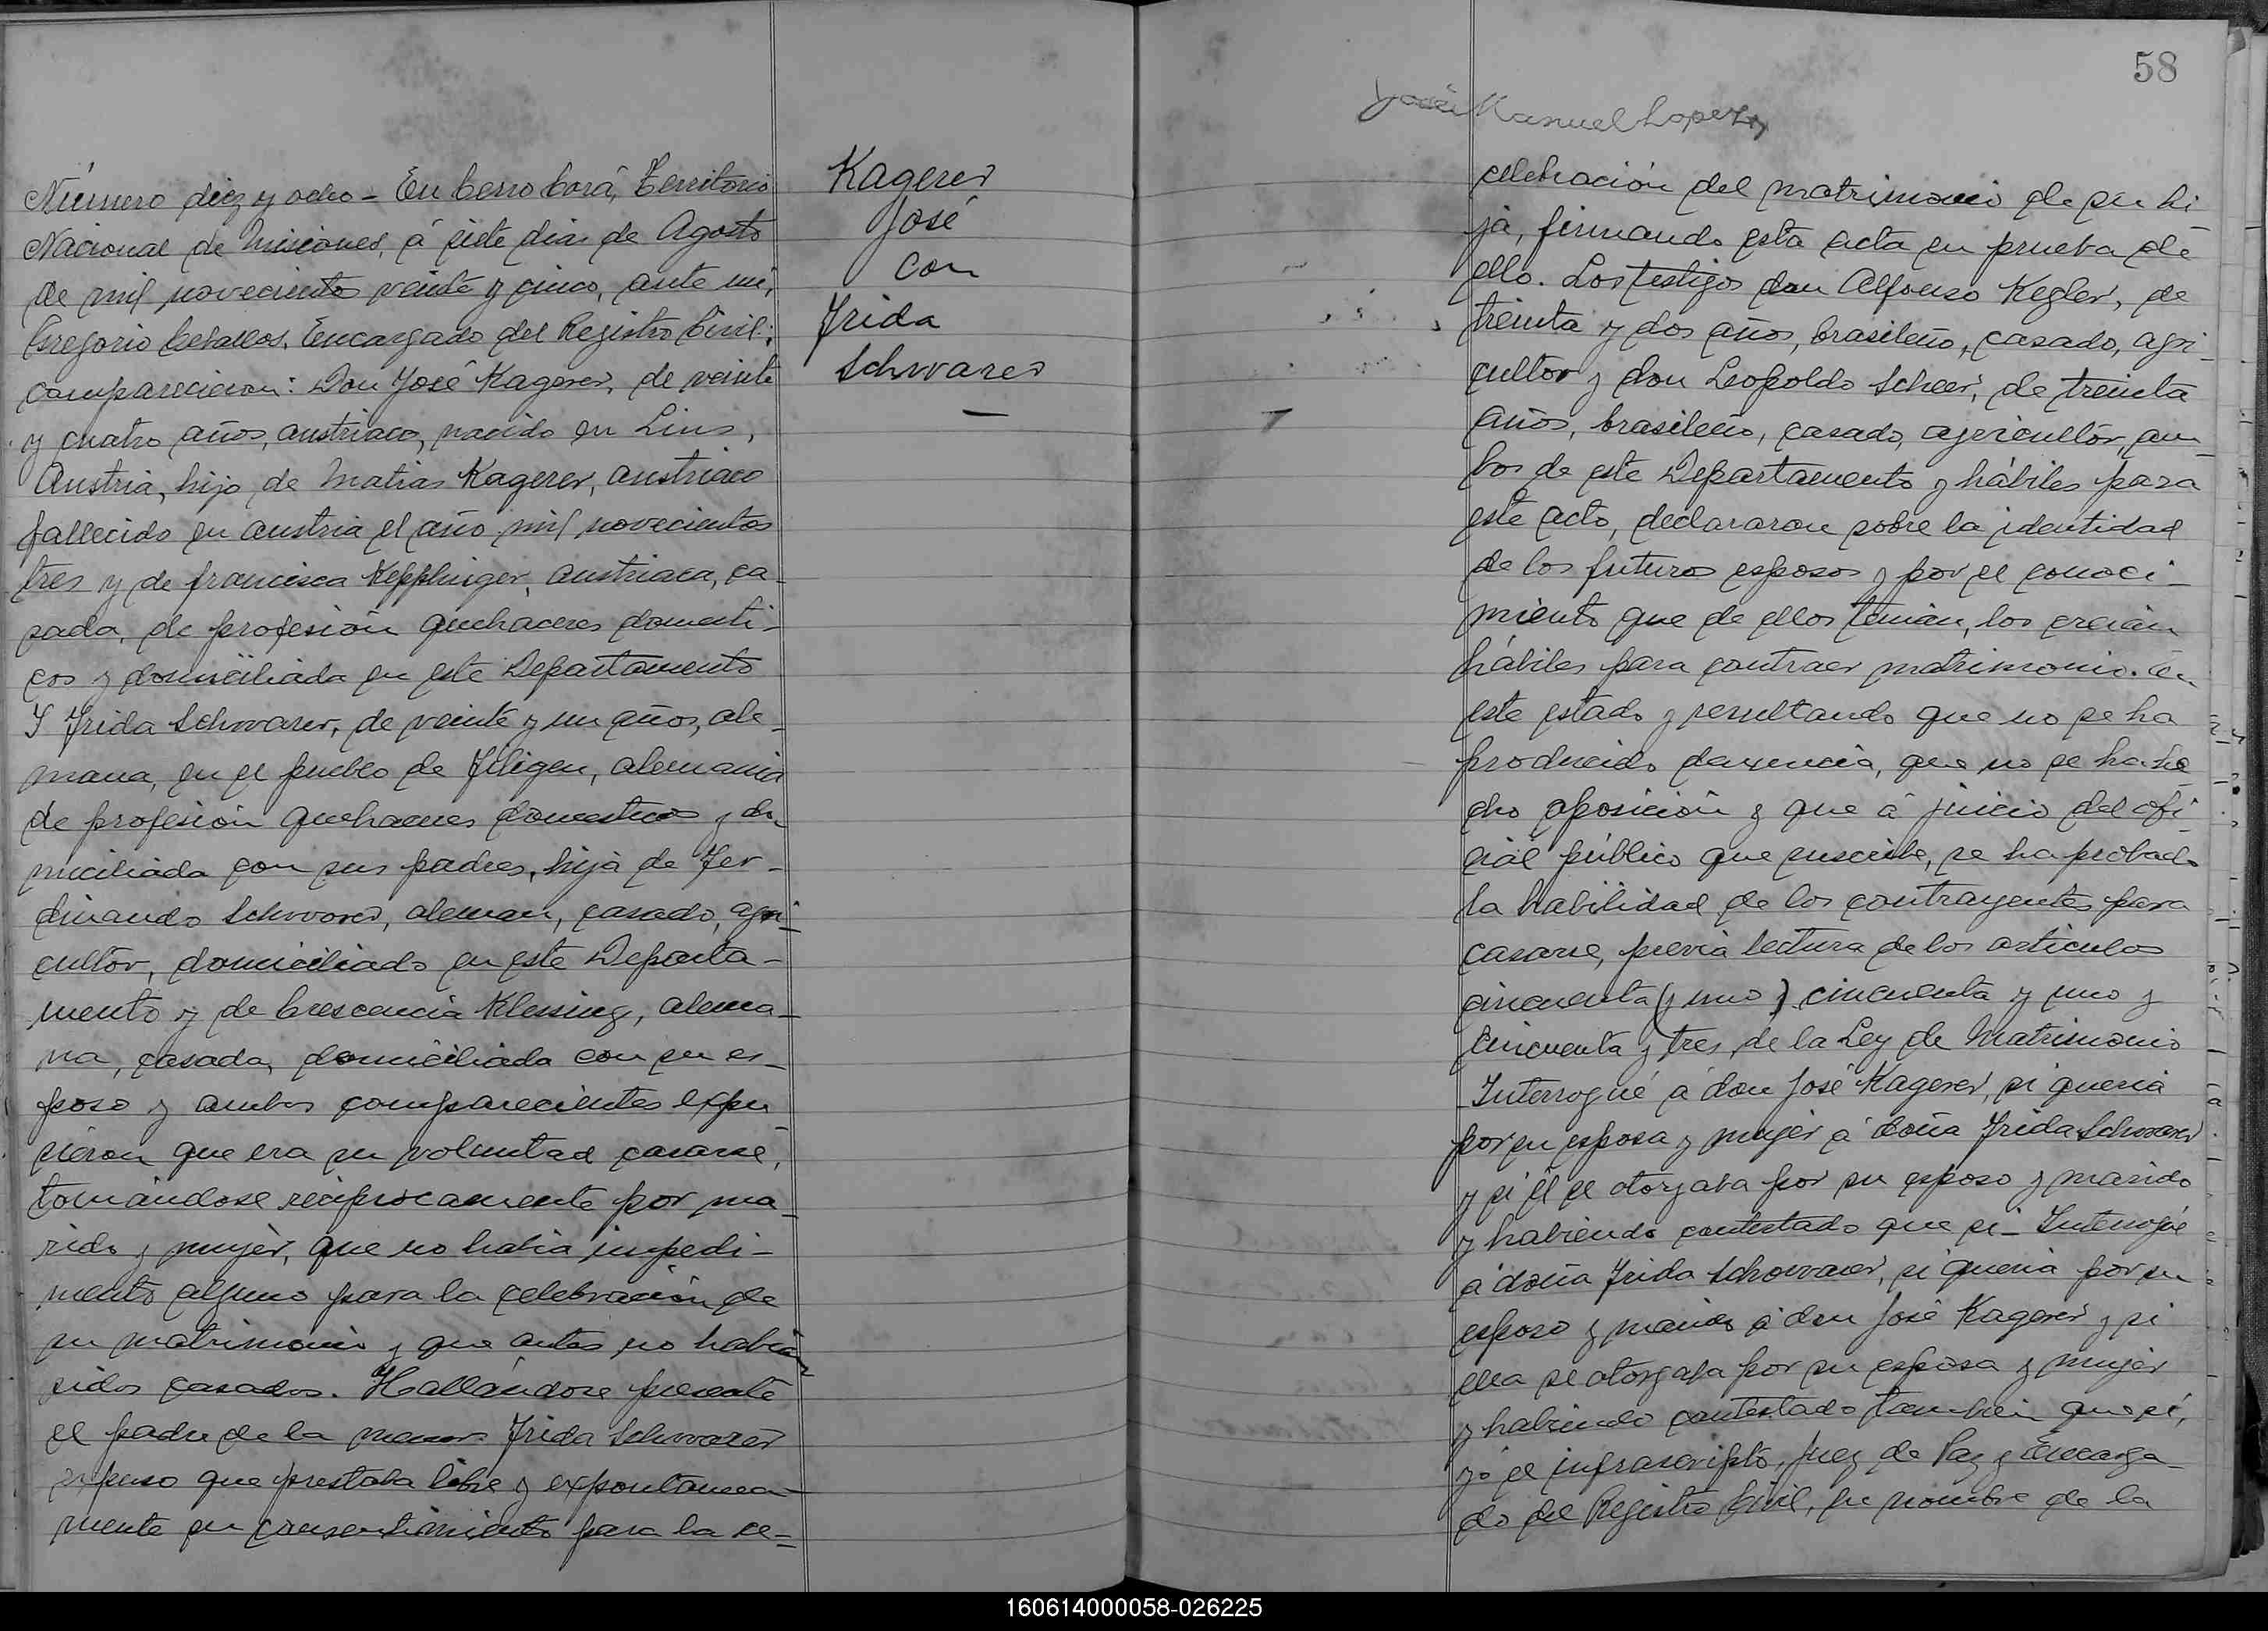 Número diez y ocho - En Cerro Corá, Territorio
Nacional de Misiones, á siete dias de Agosto
de mil novecientos veinte y cinco, ante mi,
Gregorio Ceballos, Encargado del Registro Civil;
comparecieron: Don José Kagerer, de veinte
y cuatro años, austriaco, nacido en Lins,
Austria, hijo de Matias Kagerer, austriaco
fallecido en austria el año mil novecientos
tres y de francisca Kepplinger, austriaca, ca-
sada, de profesión quehaceres domesti-
cos y domiciliada en este Departamento
Y Frida Schwarer, de veinte y un años, ale-
mana, en el pueblo de Filigen, alemania
de profesión quehaceres domesticos y do-
miciliada con sus padres, hija de Fer-
dinando Schwarer, aleman, casado, agri-
cultor, domiciliado en este Departa-
mento y de Crescencia Klessing, alema-
na, casada, domiciliada con su es-
poso y ambos comparecientes expu
sieron que era su voluntad casarse,
tomándose reciprocamente por ma-
rido y mujer, que no habia impedi-
mento alguno para la celebración de
su matrimonio y que antes no habian
sidos casados. Hallándose presente
el padre de la menor Frida Schwarer
expuso que prestaba libre y expontanea-
mente su consentimiento para la ce-
Kagerer
José
con
Frida
Schwarer
58
José Manuel Lopez
celebración del matrimonio de su hi
ja, firmando esta acta en prueba de
ello. Los testigos don Alfonso Kegler, de
treinta y dos años, brasileño, casado, agri-
cultor y don Leopoldo Scheer, de treinta
años, brasileño, casado, agricultor, am-
bos de este Departamento y hábiles para
este acto, declararon sobre la identidad
de los futuros esposos y por el conoci-
miento que de ellos tenian, los creian
hábiles para contraer matrimonio. En
este estado y resultando que no se ha
producido denuncia, que no se ha he
cho oposición y que á juicio del ofi-
cial público que suscribe, se ha probado
la habilidad de los contrayentes para
casarse, previa lectura de los articulos
cincuenta (y uno) cincuenta y uno y
cincuenta y tres, de la Ley de Matrimonio
Interrogué á don José Kagerer, si queria
por su esposa y mujer á doña Frida Schwarer
y si él se otorgaba por su esposo y marido
y habiendo contestado que si - Interrogué
á doña Frida Schwarer, si queria por su
esposo y marido á don José Kagerer y si
ella se otorgaba por su esposa y mujer
y habiendo contestado tambien que si,
yó el infrascripto, Juez de Paz y Encarga-
do del Registro Civil, en nombre de la
160614000058-026225